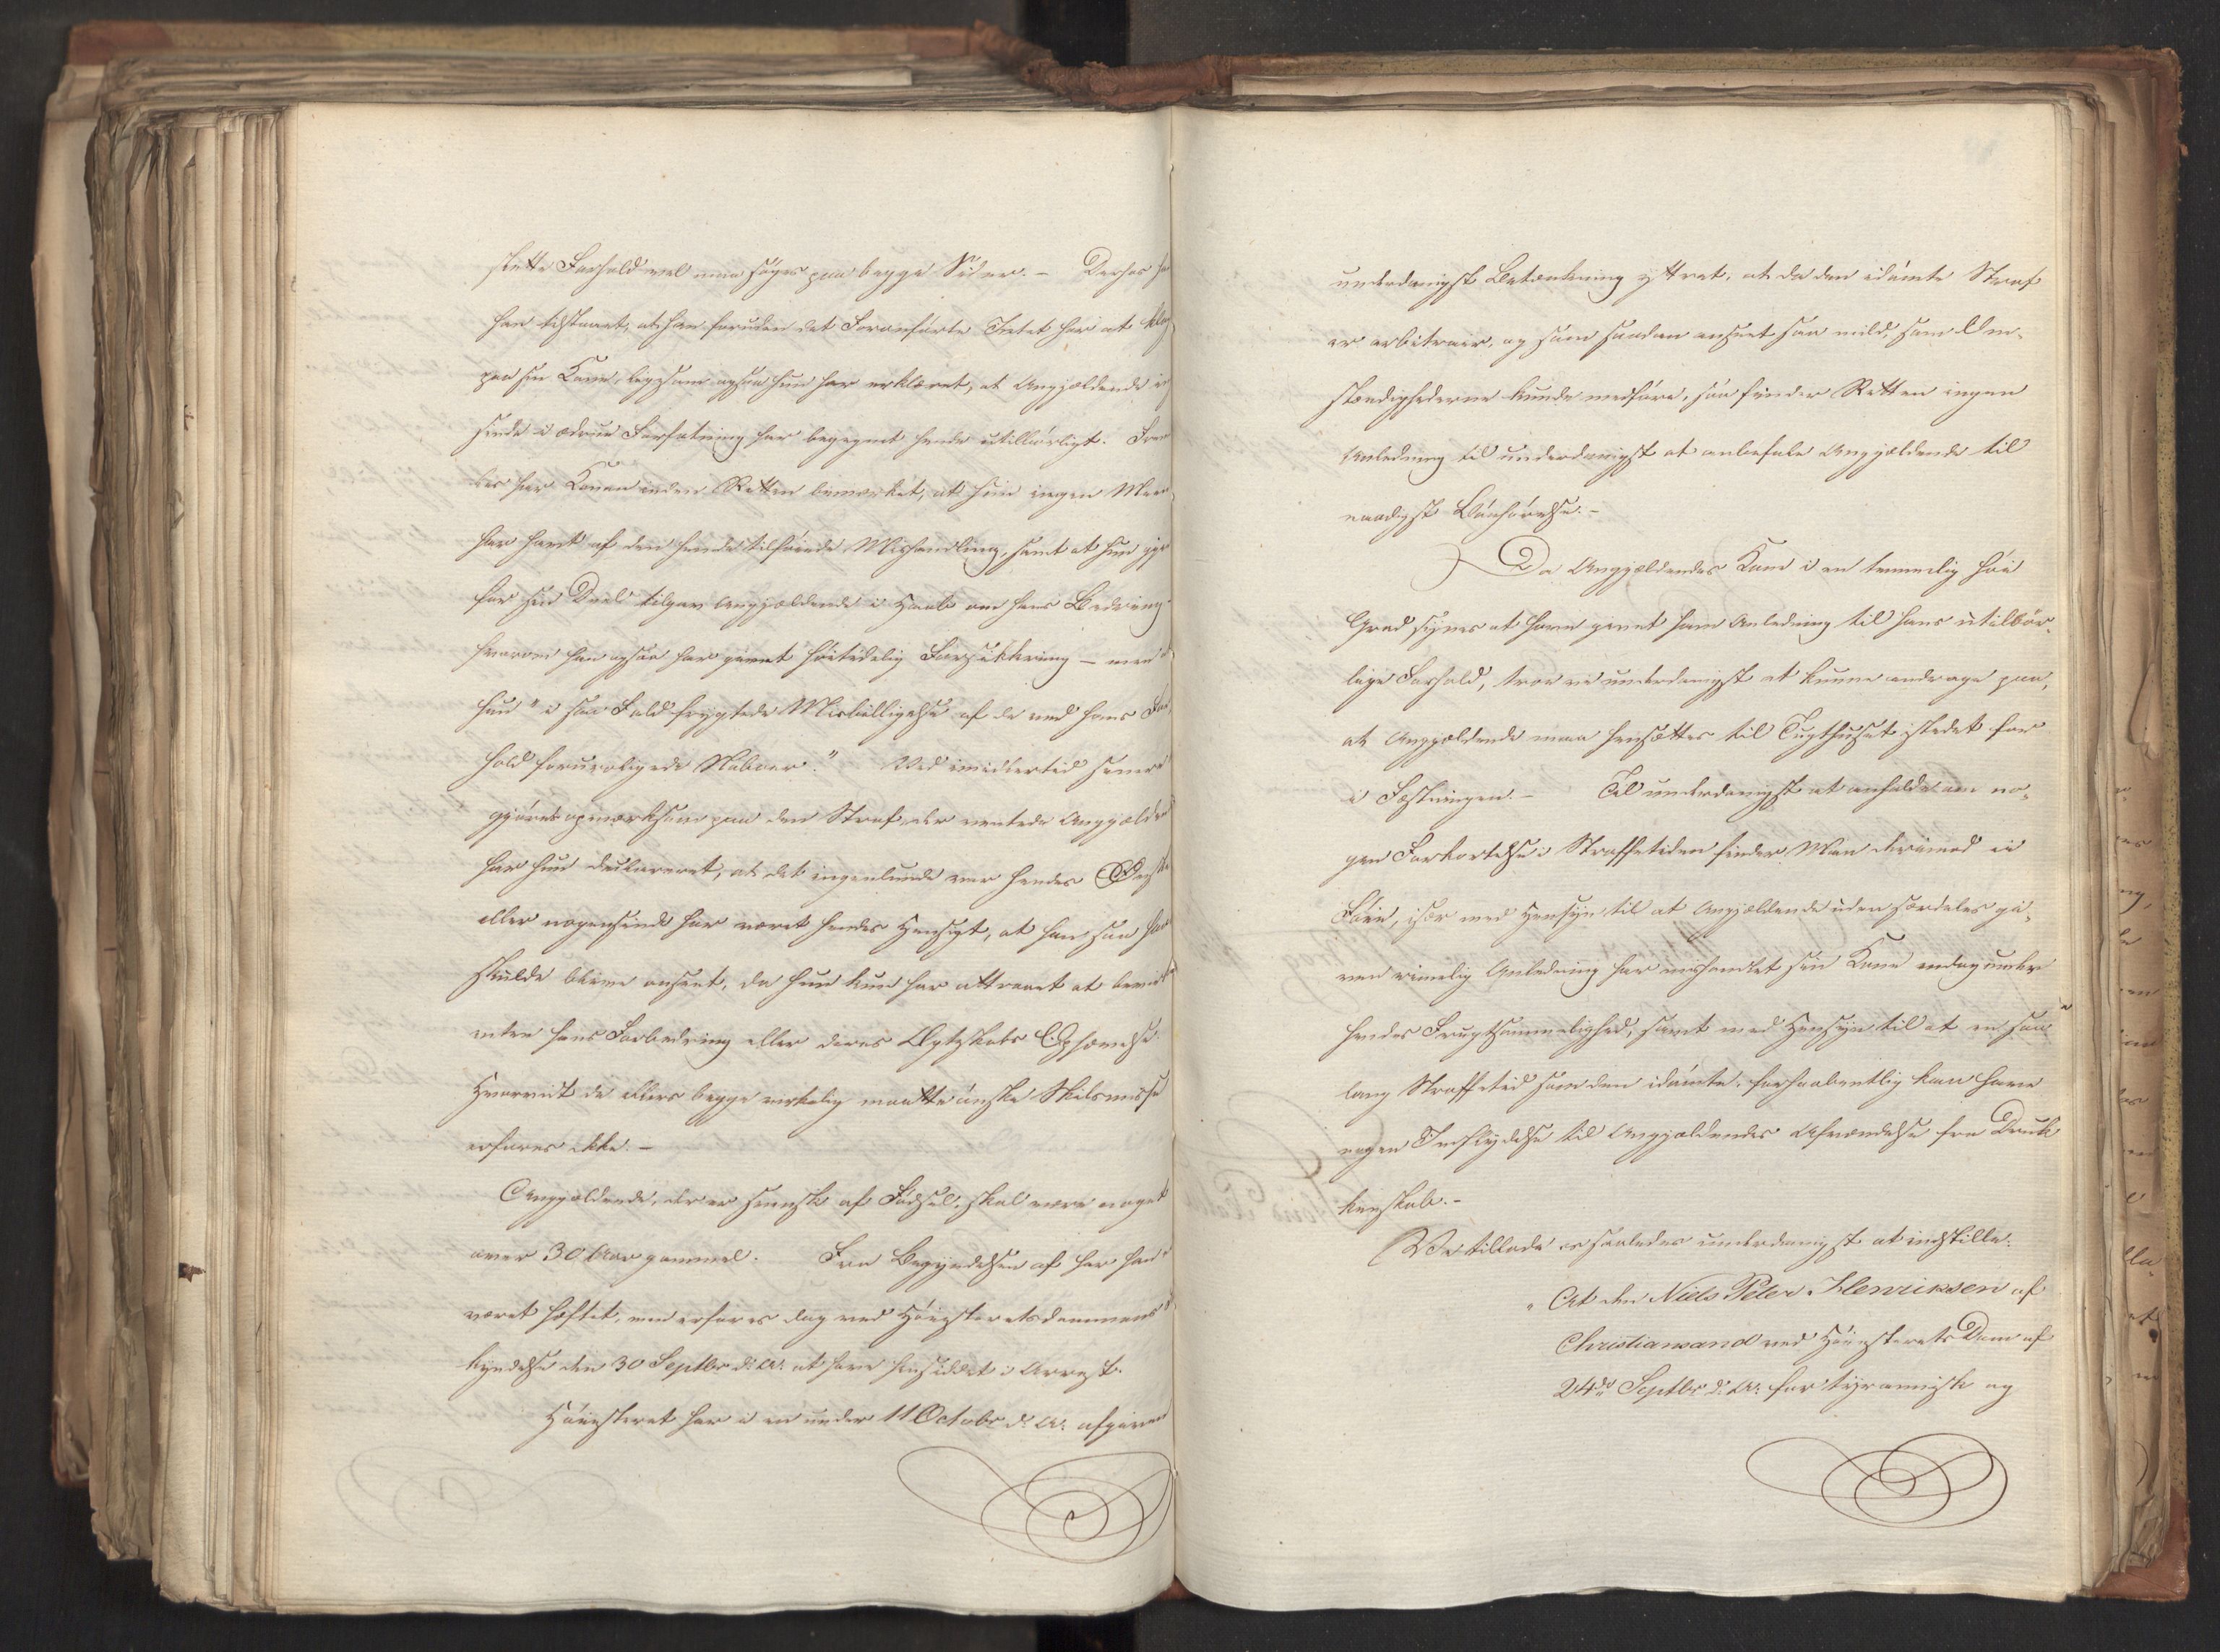 slette Forhold vel maa søges paa begge Sider. - Derhos har
han tilstaaet, at han foruden det Foranførte Intet har at klage
paa sin Kone, ligesom ogsaa hun har erklæret, at Angjældende in-
sinde i ædrue Forfatning har begegnet hende utilbørligt. Frem-
des har Konen inden Retten bemærket, at hun ingen Meen
har havt af den hende tilføiede Mishandling, samt at hun gjer
for sin Deel tilgav Angjældende i Haab om hans Bedring -
hvorom han ogsaa har givet høitidelig Forsikkring - men at
hun "i saa Fald frygtede Misbilligelse af de ved hans For-
hold foruroligede Naboer." Ved imidlertid senere
gjøres opmærksom paa den Straf, der ventede Angjældende
har hun declareret, at det ingenlunde var hendes Ønske
eller nogensinde har været hendes Hensigt, at han saa haardt
skulde blive anseet, da hun kun har attraaet at bevirke
enten hans Forbedring eller deres Ægteskabs Ophævelse.
Hvorvidt de ellers begge virkelig maatte ønske Skilsmisse
erfares ikke. -
Angjældende, der er svensk af Fødsel, skal være noget
over 30 Aar gammel. Fra Begyndelsen af har han i
været hæftet, men erfares dog ved Høiesteretsdommens For-
kyndelse den 30 Septbr d: A: at have hensiddet i Arrest.
Høiesteret har i en under 11 Octobr d: A: afgiven
underdanigst Betænkning yttret, at da den idømte Straf
er arbitrair, og som saadan anseet saa mild, som Om-
stændighederne kunde medføre, saa finder Retten ingen
Anledning til underdanigst at anbefale Angjældende til
naadigst Bønhørelse. -
Da Angjældendes Kone i en temmelig høi
Grad synes at have givet ham Anledning til hans utilbør-
lige Forhold, troe vi underdanigst at kunne andrage paa,
at Angjældende maa hensættes til Tugthuset istedet for
i Fæstningen. - Til underdanigst at anholde om no-
gen Forkortelse i Straffetiden finder Man derimod ei
Føie, især med Hensyn til at Angjældende uden særdeles gi-
ven rimelig Anledning har mishandlet sin Kone endog under
hendes Frugtsommelighed, samt med Hensyn til at en saa
lang Straffetid som den idømte, forhaabentlig kan have
nogen Indflydelse til Angjældendes Afvendelse fra Druk-
kenskab. -
Vi tillade os saaledes underdanigst at indstille:
"At den Niels Peter Henriksen af
Christiansand ved Høiesterets Dom af
24de Septbr d: A: for tyrannisk og